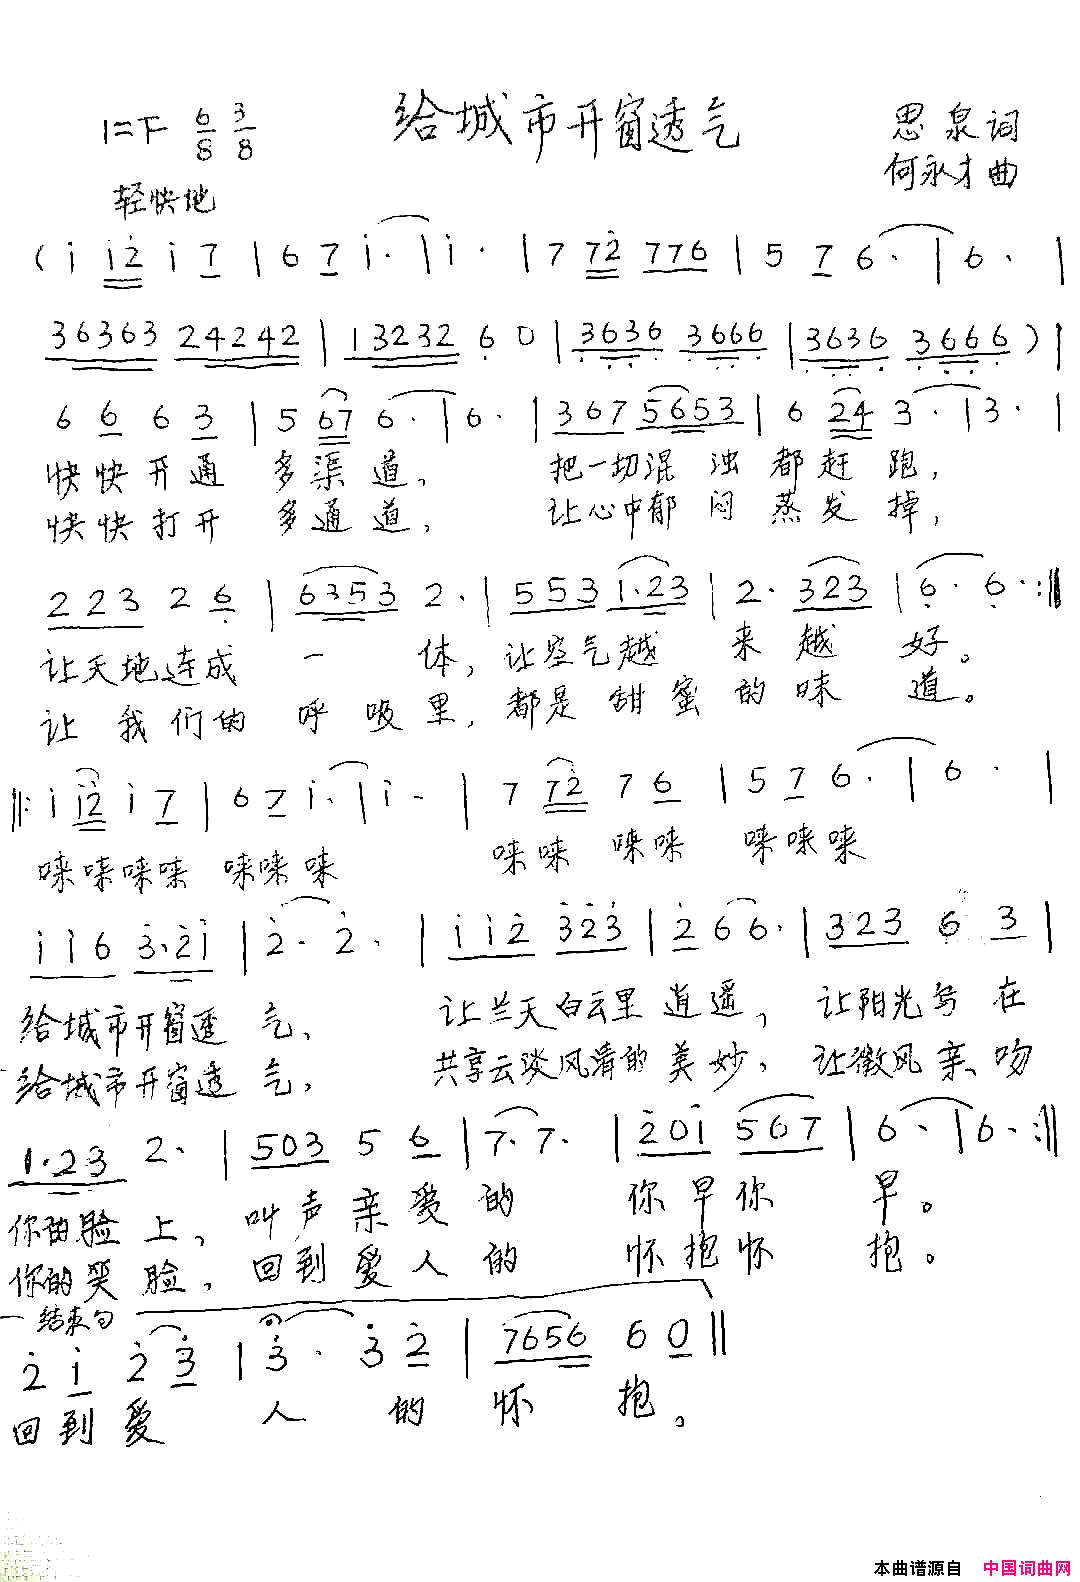 给城市开窗透气
1=F 6/8 3/8
思泉词
何永才曲
轻快地
( i i2 i 7 | 6 7 i· | i· | 7 72 776 | 5 7 6· | 6· |
36363 24242 | 13232 6 0 | 3636 3666 | 3636 3666 ) |
6 6 6 3 | 5 67 6· | 6· | 367 5653 | 6 24 3· | 3· |
快快开通 多渠道, 把一切混浊都赶跑,
快快打开 多通道, 让心中郁闷蒸发掉,
223 2 6 | 6353 2· | 553 1·23 | 2· 323 | 6· 6· :||
让天地连成一体, 让空气越来越好。
让我们的呼吸里, 都是甜蜜的味道。
||: i i2 i 7 | 6 7 i· | i· | 7 72 7 6 | 5 7 6· | 6· |
唻唻唻唻 唻唻唻 唻唻 唻唻 唻唻唻
i i 6 3·2i | 2· 2· | i i 2 323 | 2 6 6· | 323 6 3 |
给城市开窗透气, 让兰天白云里逍遥, 让阳光写在
给城市开窗透气, 共享云淡风清的美妙, 让微风亲吻
1·23 2· | 503 5 6 | 7· 7· | 20i 567 | 6· | 6· :||
你的脸上, 叫声亲爱的 你早你早。
你的笑脸, 回到爱人的 怀抱怀抱。
结束句
2 i 2 3 | 3· 3 2 | 7656 6 0 ||
回到爱人的怀抱。
本曲谱源自 中国词曲网